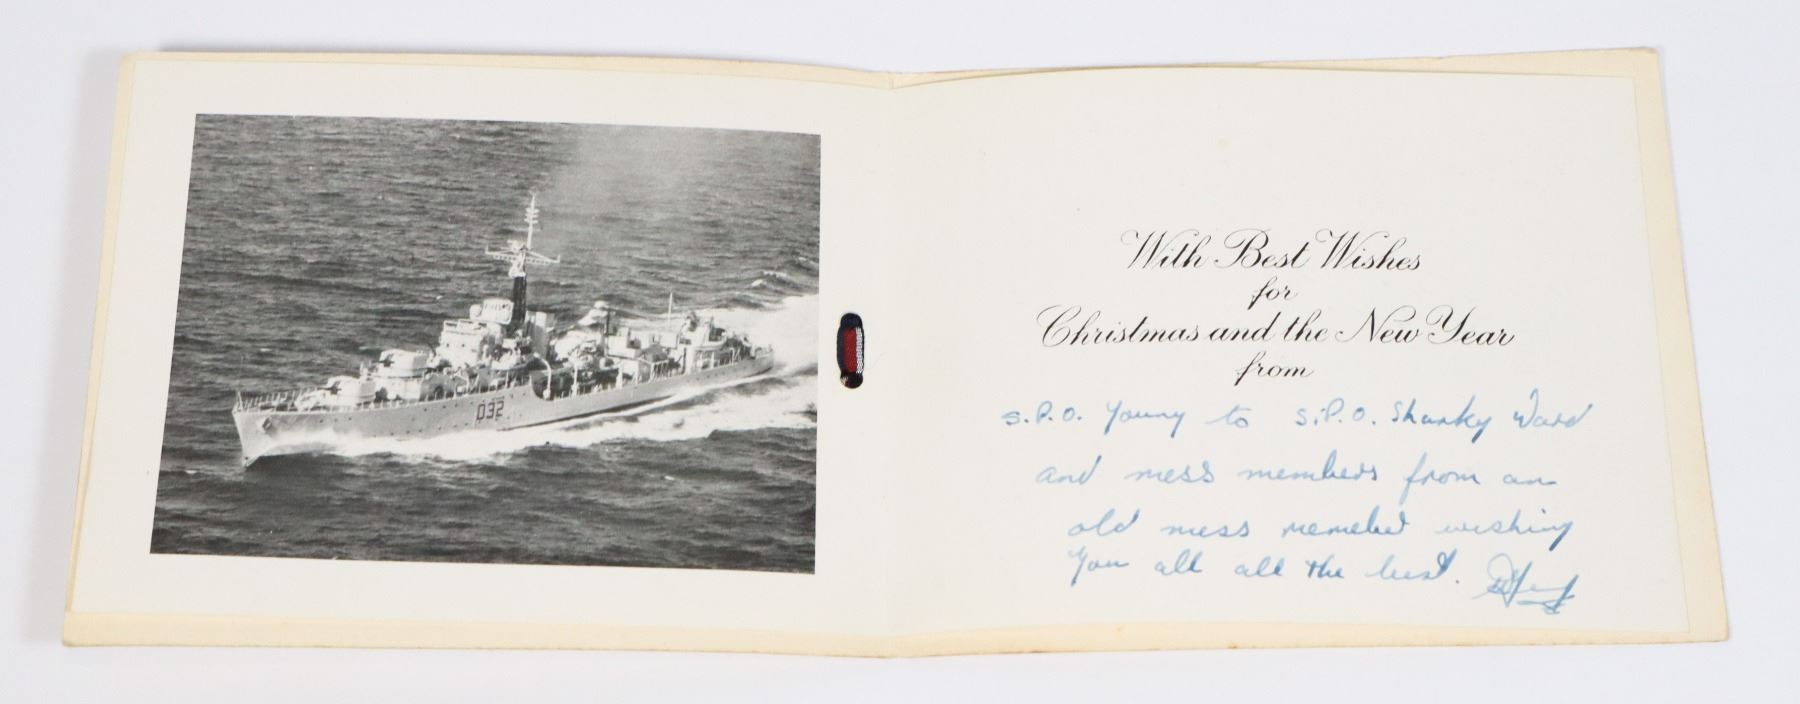 D32
With Best Wishes
for
Christmas and the New Year
from
S.P.O. Young to S.P.O. Sharky Ward
and mess members from an
old mess member wishing
you all all the best.